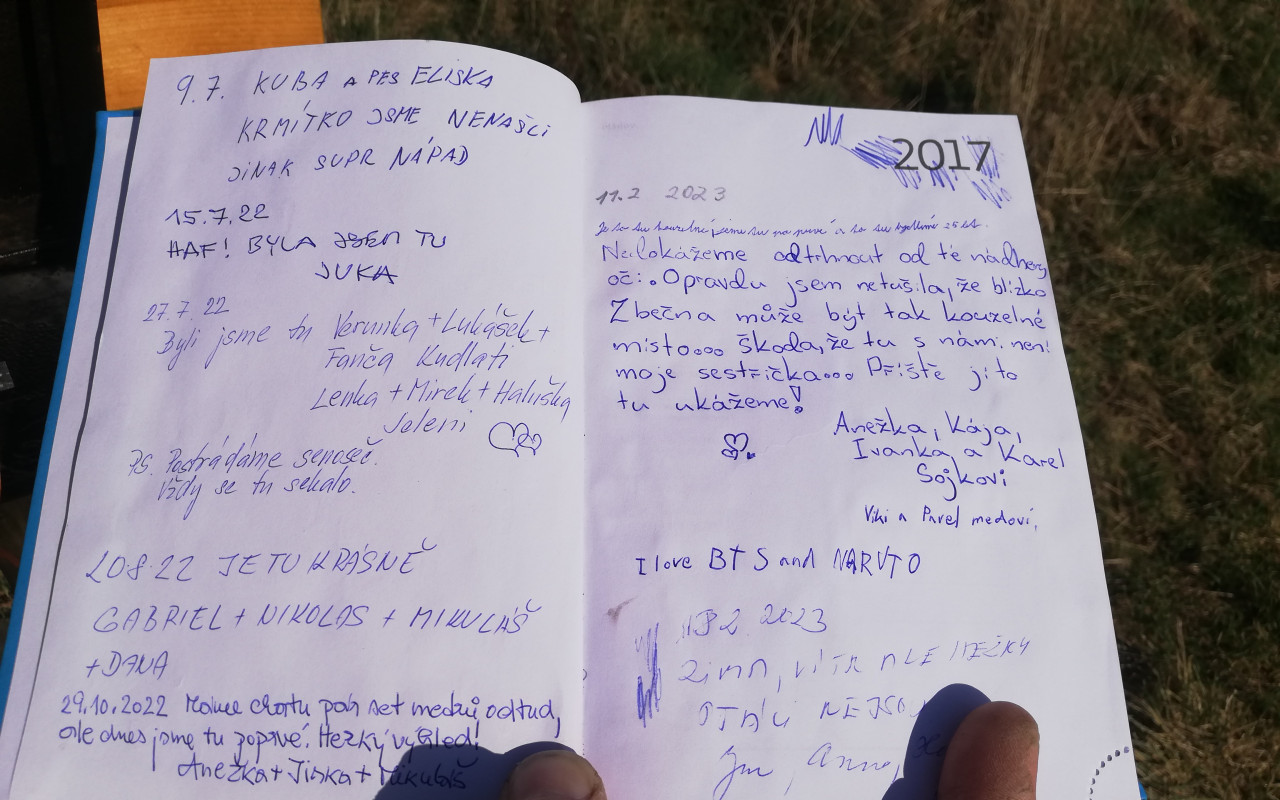 9.7. KUBA A PES ELIŠKA
KRMÍTKO JSME NENAŠLI
JINAK SUPR NÁPAD
15.7.22
HAF! BYLA JSEM TU
JUKA
27.7.22
Byli jsme tu Verunka + Lukášek +
Fanča Kudlati
Lenka + Mirek + Haluška
Jeleni
PS. Postrádáme senoseč.
Vždy se tu sekalo.
20.8.22 JE TU KRÁSNĚ
GABRIEL + NIKOLAS + MIKULÁŠ
+ DANA
29.10.2022 Máme chatu pár set metrů odtud,
ale dnes jsme tu poprvé. Hezký výhled!
Anežka + Jirka + Mikuláš
2017
11.2 2023
Je to tu kouzelné jsme tu po prvé a to tu bydlíme 25 let.
Nedokážeme odtrhnout od té nádhery
oči. Opravdu jsem netušila, že blízko
Zbečna může být tak kouzelné
místo... škoda, že tu s námi není
moje sestřička... Příště jí to
tu ukážeme!
Anežka, Kája,
Ivanka a Karel
Sojkovi
Viki a Pavel medovi,
I love BTS and NARUTO
13 2 2023
ZIMA, VÍTR ALE HEZKY
PTÁCI NEJSOU